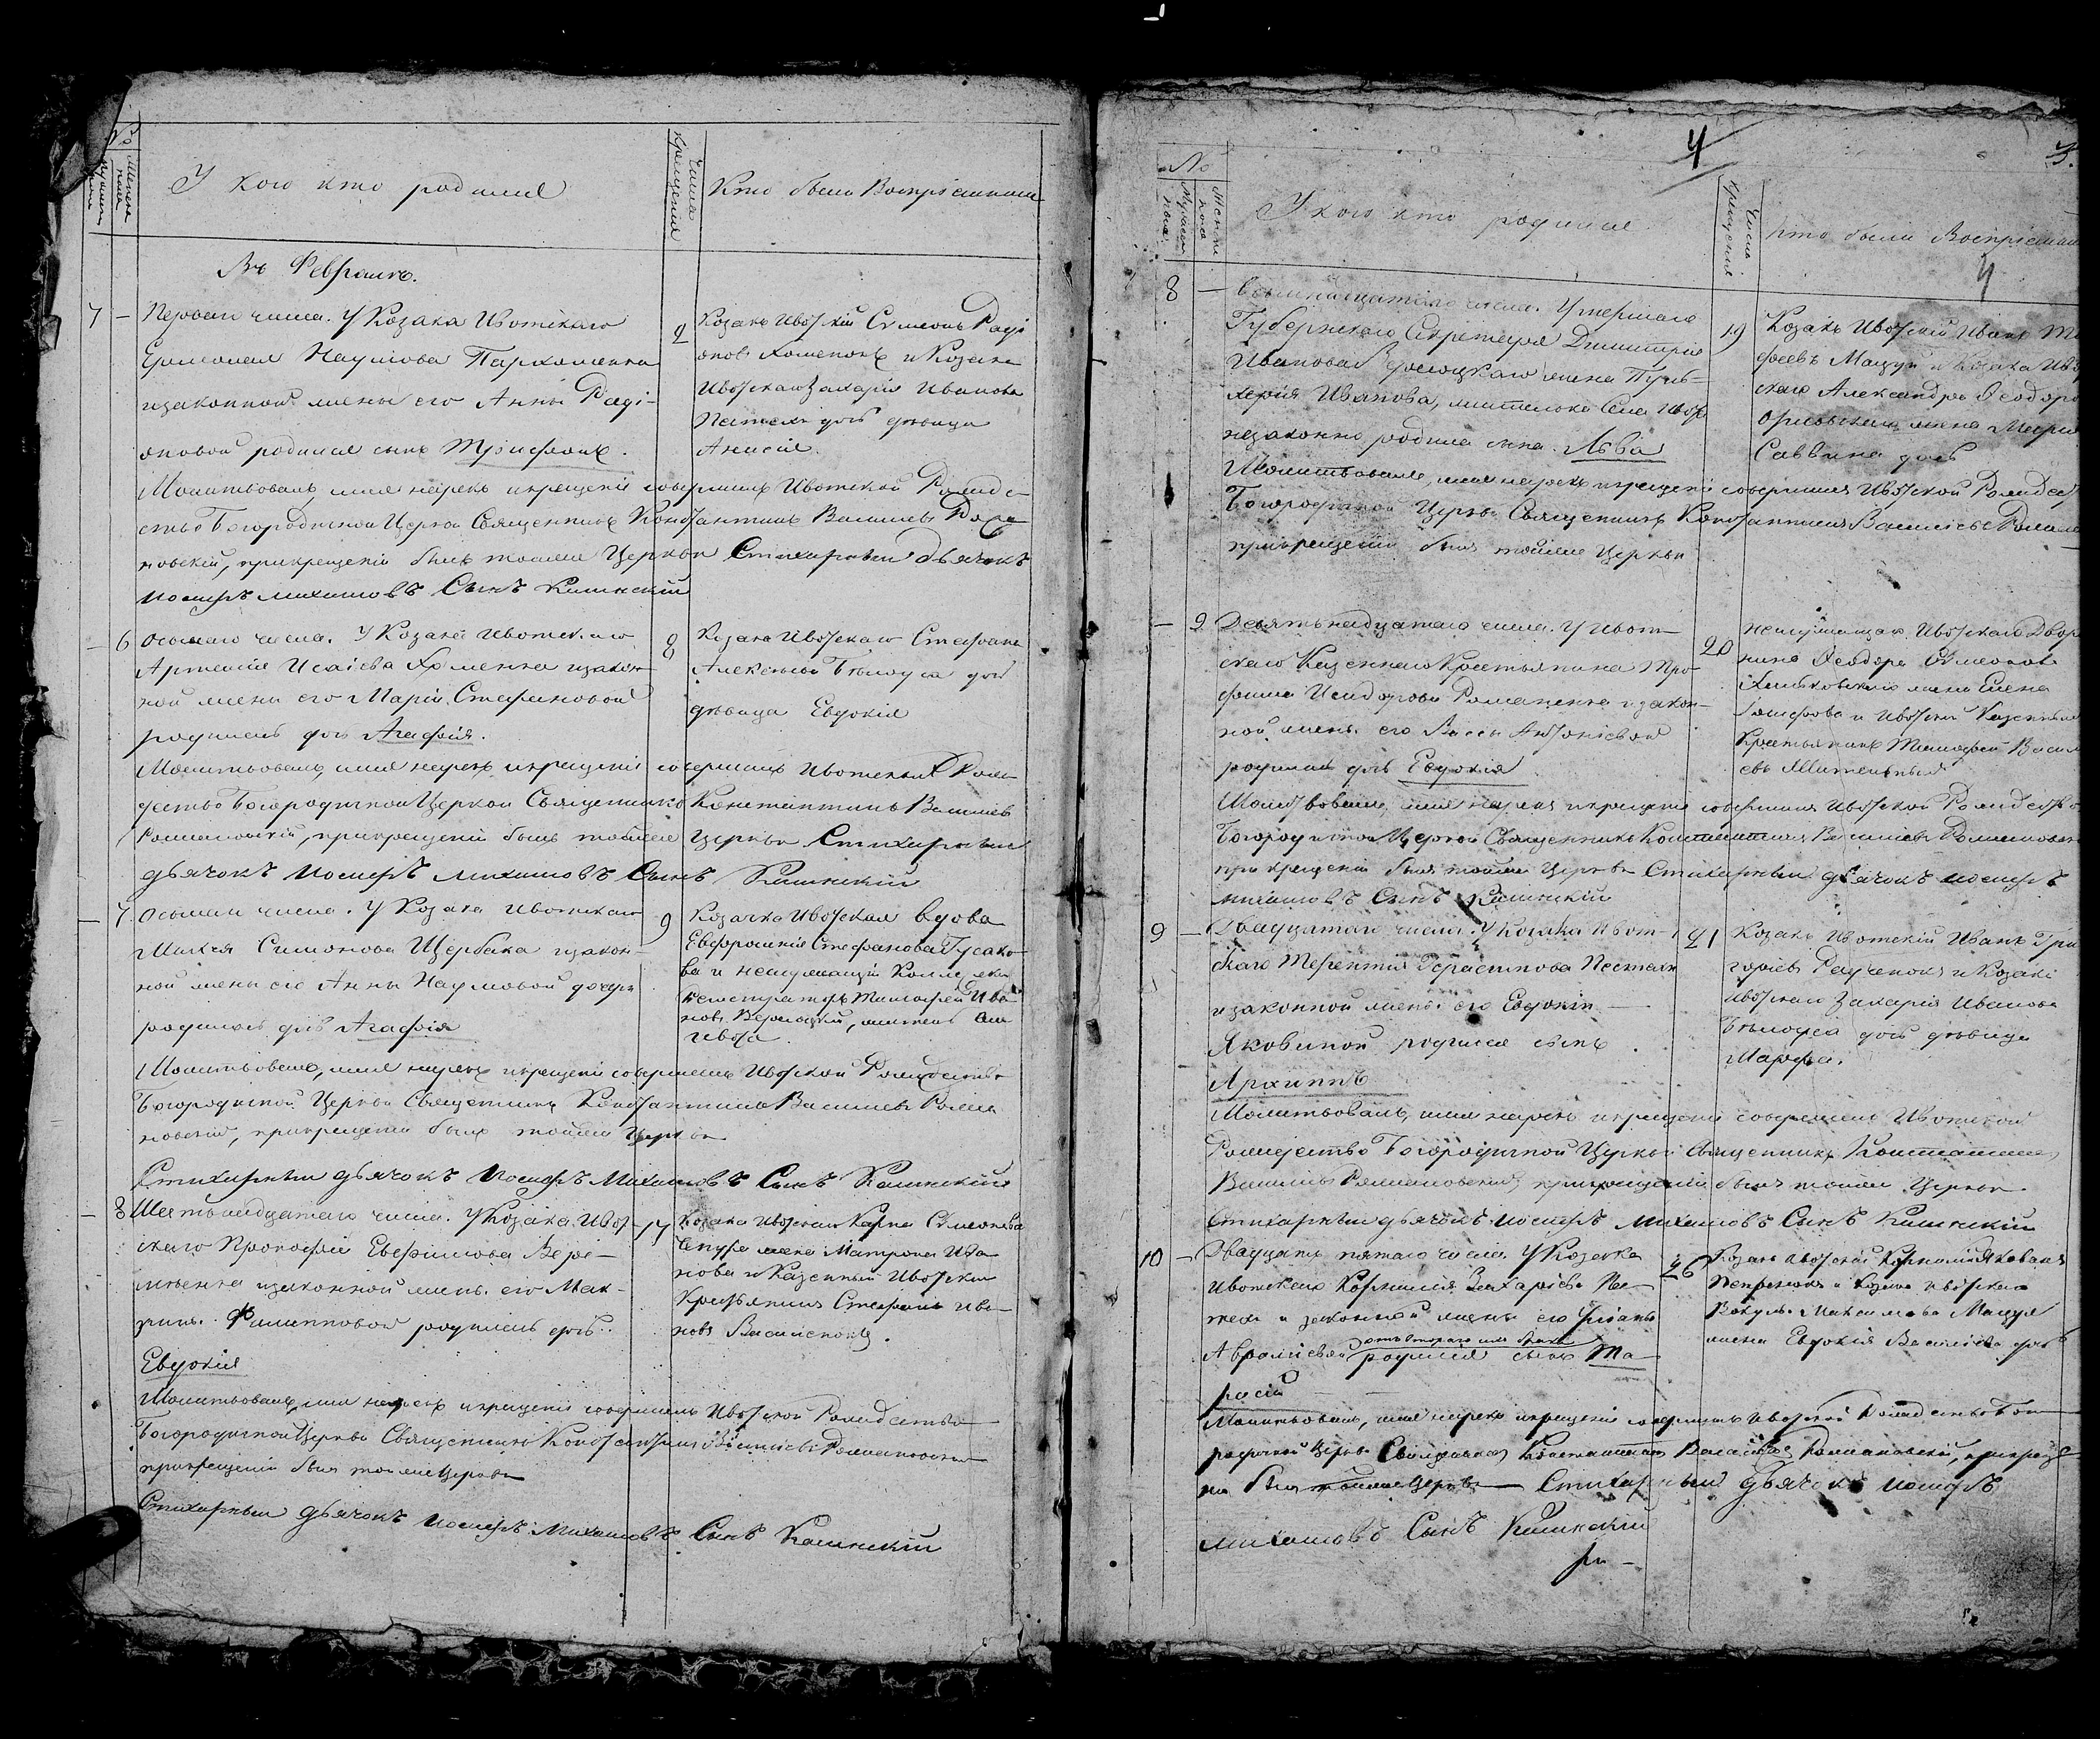 №
Мужеска
Женска пола
У кого кто родился
Числа крещенія
Кто были Воспріемники
Въ Февралѣ.
7 – Перваго числа. У Козака Ивотскаго
Наумова Пархоменка
изаконной жены его Анны Раді-
оновой родился сынъ Трифонъ.
2
Козакъ Ивотскій Сѵмеонъ Раді
оновъ Хоменокъ и Козака
Ивотскаго Захарія Иванова
дочь дѣвица
Анисія.
Молитвовалъ, имя нарекъ икрещеніе совершилъ Ивотской Рождe-
ство Богородичной Церкви Священникъ Константинъ Васильевъ Рома
новскій, прикрещеніи былъ тойже Церкви Стихарный дьячокъ
Иосифъ михаиловъ Сынъ Калинскій
– 6 Осьмаго числа. У Козака Ивотскаго
Артемія Исаіева Хоменка изакон-
ной жены его Маріи Стефановой
родилась дочь Агафія.
8
Козака Ивотскаго Стефана
Алексѣева Бѣлоуса дочь
дѣвица Евдокія
Молитвовалъ, имя нарекъ икрещеніе совершилъ Ивотской Рож
дество Богородичной Церкви Священникъ Константинъ Васильевъ
Романовскій, прикрещеніи былъ тойже Церкви Стихарный
дьячокъ Иосифъ михаиловъ Сынъ Калинскій
– 7 Осьмаго числа. У Козака Ивотскаго
Симонова Щербака изакон-
ной жены его Анны Наумовой дочерь
родилась дочь Агафія
9
Козачка Ивотская вдова
Евфросинія Стефанова Гусако-
ва и неслужащій Коллежскій
Регистраторъ Тимофей Ива-
новъ Верещакій, житель села
Ивота.
Молитвовалъ, имя нарекъ икрещеніе совершилъ Ивотской Рождество
Богородичной Церкви Священникъ Константинъ Васильевъ Рома
новскій, прикрещеніи былъ тойже Церкви
Стихарный дьячокъ Иосифъ Михаиловъ Сынъ Калинскій
– 8 Шестьнадцатаго числа. У Козака Ивот-
скаго Прокофія Евфимова Вере-
изаконной жены его Мак-
рины Филипповой родилась дочь
Евдокія
17
Козака Ивотскаго Карпа Сѵмеонова
жена Матрона Ива
нова и Казенный Ивотскій
Крестьянинъ Стефанъ Ива-
новъ Василенокъ.
Молитвовалъ, имя нарекъ икрещеніе совершилъ Ивотской Рождество
Богородичной Церкви Священникъ Константинъ Васильевъ Романовскій
прикрещеніи былъ тойже Церкви
Стихарный дьячокъ Иосифъ Михаиловъ Сынъ Калинскій
4
3.
№
Мужеска пола
Женска пола
У кого кто родился
Числа крещенія
Кто были Воспріемники
4
8 – Восьмнадцатаго числа. Умершаго
Губернскаго Секретаря Димитрія
Иванова жена Пуль-
херія Иванова, жителька Села Ивота
незаконно родила сына Льва
19
Козакъ Ивотскій Иванъ Ти
фѣевъ Мацуй и Козака Ивот
скаго Александра Ѳеодоро
жена Мари
Саввина дочь
Молитвовалъ, имя нарекъ икрещеніе совершилъ Ивотской Рождест
Богородичной Церкви Священникъ Константинъ Васильевъ Романо
прикрещеніи былъ тойже Церкви
– 9 Девятьнадцатаго числа. У Ивот-
скаго Казеннаго Крестьянина Тро-
фима Исидорова Романенка изакон-
ной жены его Вассы Антоніевой
родилась дочь Евдокія
20
Неслужащаго Ивотскаго Двор
нина Ѳеодора Сѵмеонова
жена Елена
и Ивотскій Казенный
Крестьянинъ Тимофей Васил
евъ
Молитвовалъ, имя нарекъ икрещеніе совершилъ Ивотской Рождество
Богородичной Церкви Священникъ Константинъ Васильевъ Романовскій
при крещеніи былъ тойже Церкви Стихарный дьячокъ Иосифъ
михаиловъ Сынъ Калинскій
9 – Двадцатаго числа. У Козака Ивот-
скаго Терентія Герасимова
изаконной жены его Евдокіи
Яковиной родился сынъ
Архиппъ
21
Козакъ Ивотскій Иванъ Гри
горіевъ Радченокъ и Козака
Ивотскаго Захарія Иванова
Бѣлоуса дочь дѣвица
Марфа.
Молитвовалъ, имя нарекъ икрещеніе совершилъ Ивотской
Рождество Богородичной Церкви Священникъ Константинъ
Васильевъ Романовскій, прикрещеніи былъ тойже Церкви
Стихарный дьячокъ Иосифъ Михаиловъ Сынъ Калинскій
10 – Двадцать пятаго числа У Козака
Ивотскаго Корнилія Захаріева Пе-
и законной жены его Уліаны
отъ втораго ихъ брака
Авраміевой родился сынъ Та
расій
26
Козакъ Ивотскій Корнилій Яковлевъ
и Козака Ивотскаго
Вакулы Максимова Мацуя
жена Евдокія Васильева дочь
Молитвовалъ, имя нарекъ икрещеніе совершилъ Ивотской Рождество Бого
родичной Церкви Священникъ Константинъ Васильевъ Романовскій, прикреще
ніи былъ тойже Церкви – Стихарный дьячокъ Иосифъ
михаиловъ Сынъ Калинскій